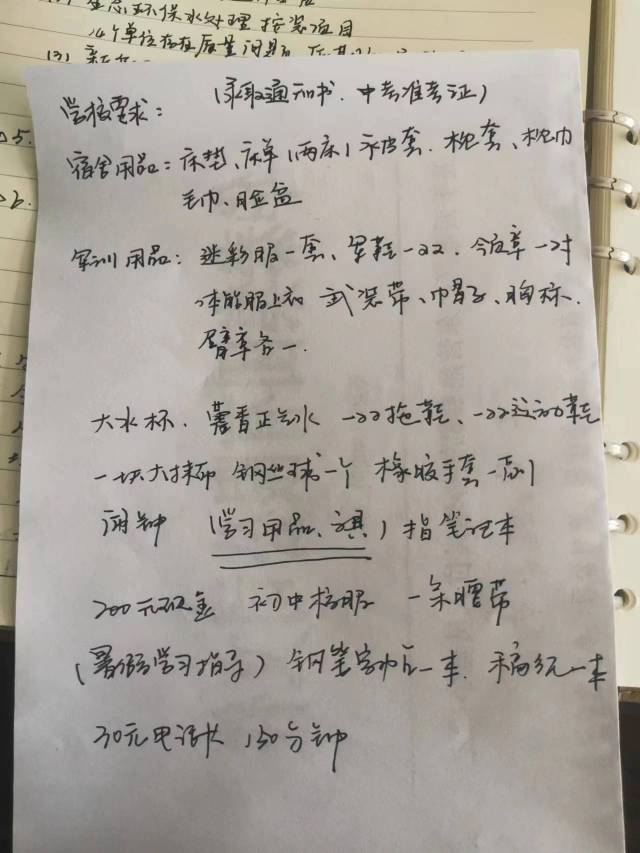 (2) 生态环保水处理 按装项目
4个单位存在质量问题
(3)
5.
6.
学校要求： (录取通知书、中考准考证)
宿舍用品：床垫、床单(两床)被套、枕套、枕巾
毛巾、脸盆
军训用品：迷彩服一套、军鞋一双、肩章一对
体能服上衣 武装带、帽子、胸标、
臂章各一.
大水杯、藿香正气水 一双拖鞋、一双运动鞋
一块大抹布 钢丝球一个 橡胶手套一副
闹钟 (学习用品、文具) 指笔记本
200元现金 初中校服 一条腰带
(暑假学习指导) 钢笔字帖一本、稿纸一本
30元电话卡 150分钟